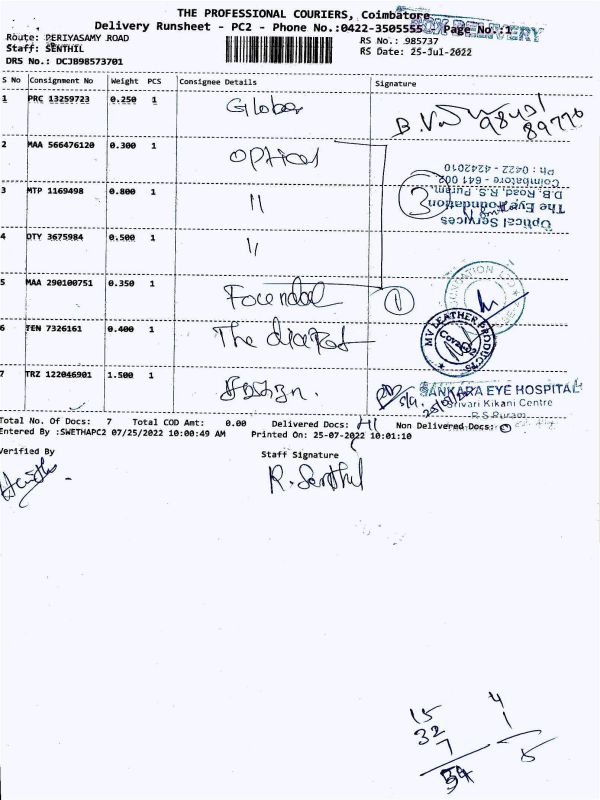 THE PROFESSIONAL COURIERS, Coimbatore
Delivery Runsheet - PC2 - Phone No.:0422-3505555 Page No.:1
BOX DELIVERY
Route: PERIYASAMY ROAD RS No.: 985737
Staff: SENTHIL RS Date: 25-Jul-2022
DRS No.: DCJB98573701
S No Consignment No Weight PCS Consignee Details Signature
1 PRC 13259723 0.250 1 Global
2 MAA 566476120 0.300 1 optical
3 MTP 1169498 0.800 1 11
4 DTY 3675984 0.500 1 11
3
Optical Services
The Eye Foundation
D.B. Road, R.S. Puram,
Coimbatore - 641 002
Ph : 0422 - 4242010
5 MAA 290100751 0.350 1 1
6 TEN 7326161 0.400 1 The
MV LEATHER PRODUCTS
7 TRZ 122046901 1.500 1
SANKARA EYE HOSPITAL
Srivari Kikani Centre
R.S.Puram
Total No. Of Docs: 7 Total COD Amt: 0.00 Delivered Docs: Non Delivered Docs: 0
Entered By :SWETHAPC2 07/25/2022 10:00:49 AM Printed On: 25-07-2022 10:01:10
Verified By Staff Signature
R. Senthil
15 4
32 1
7 5